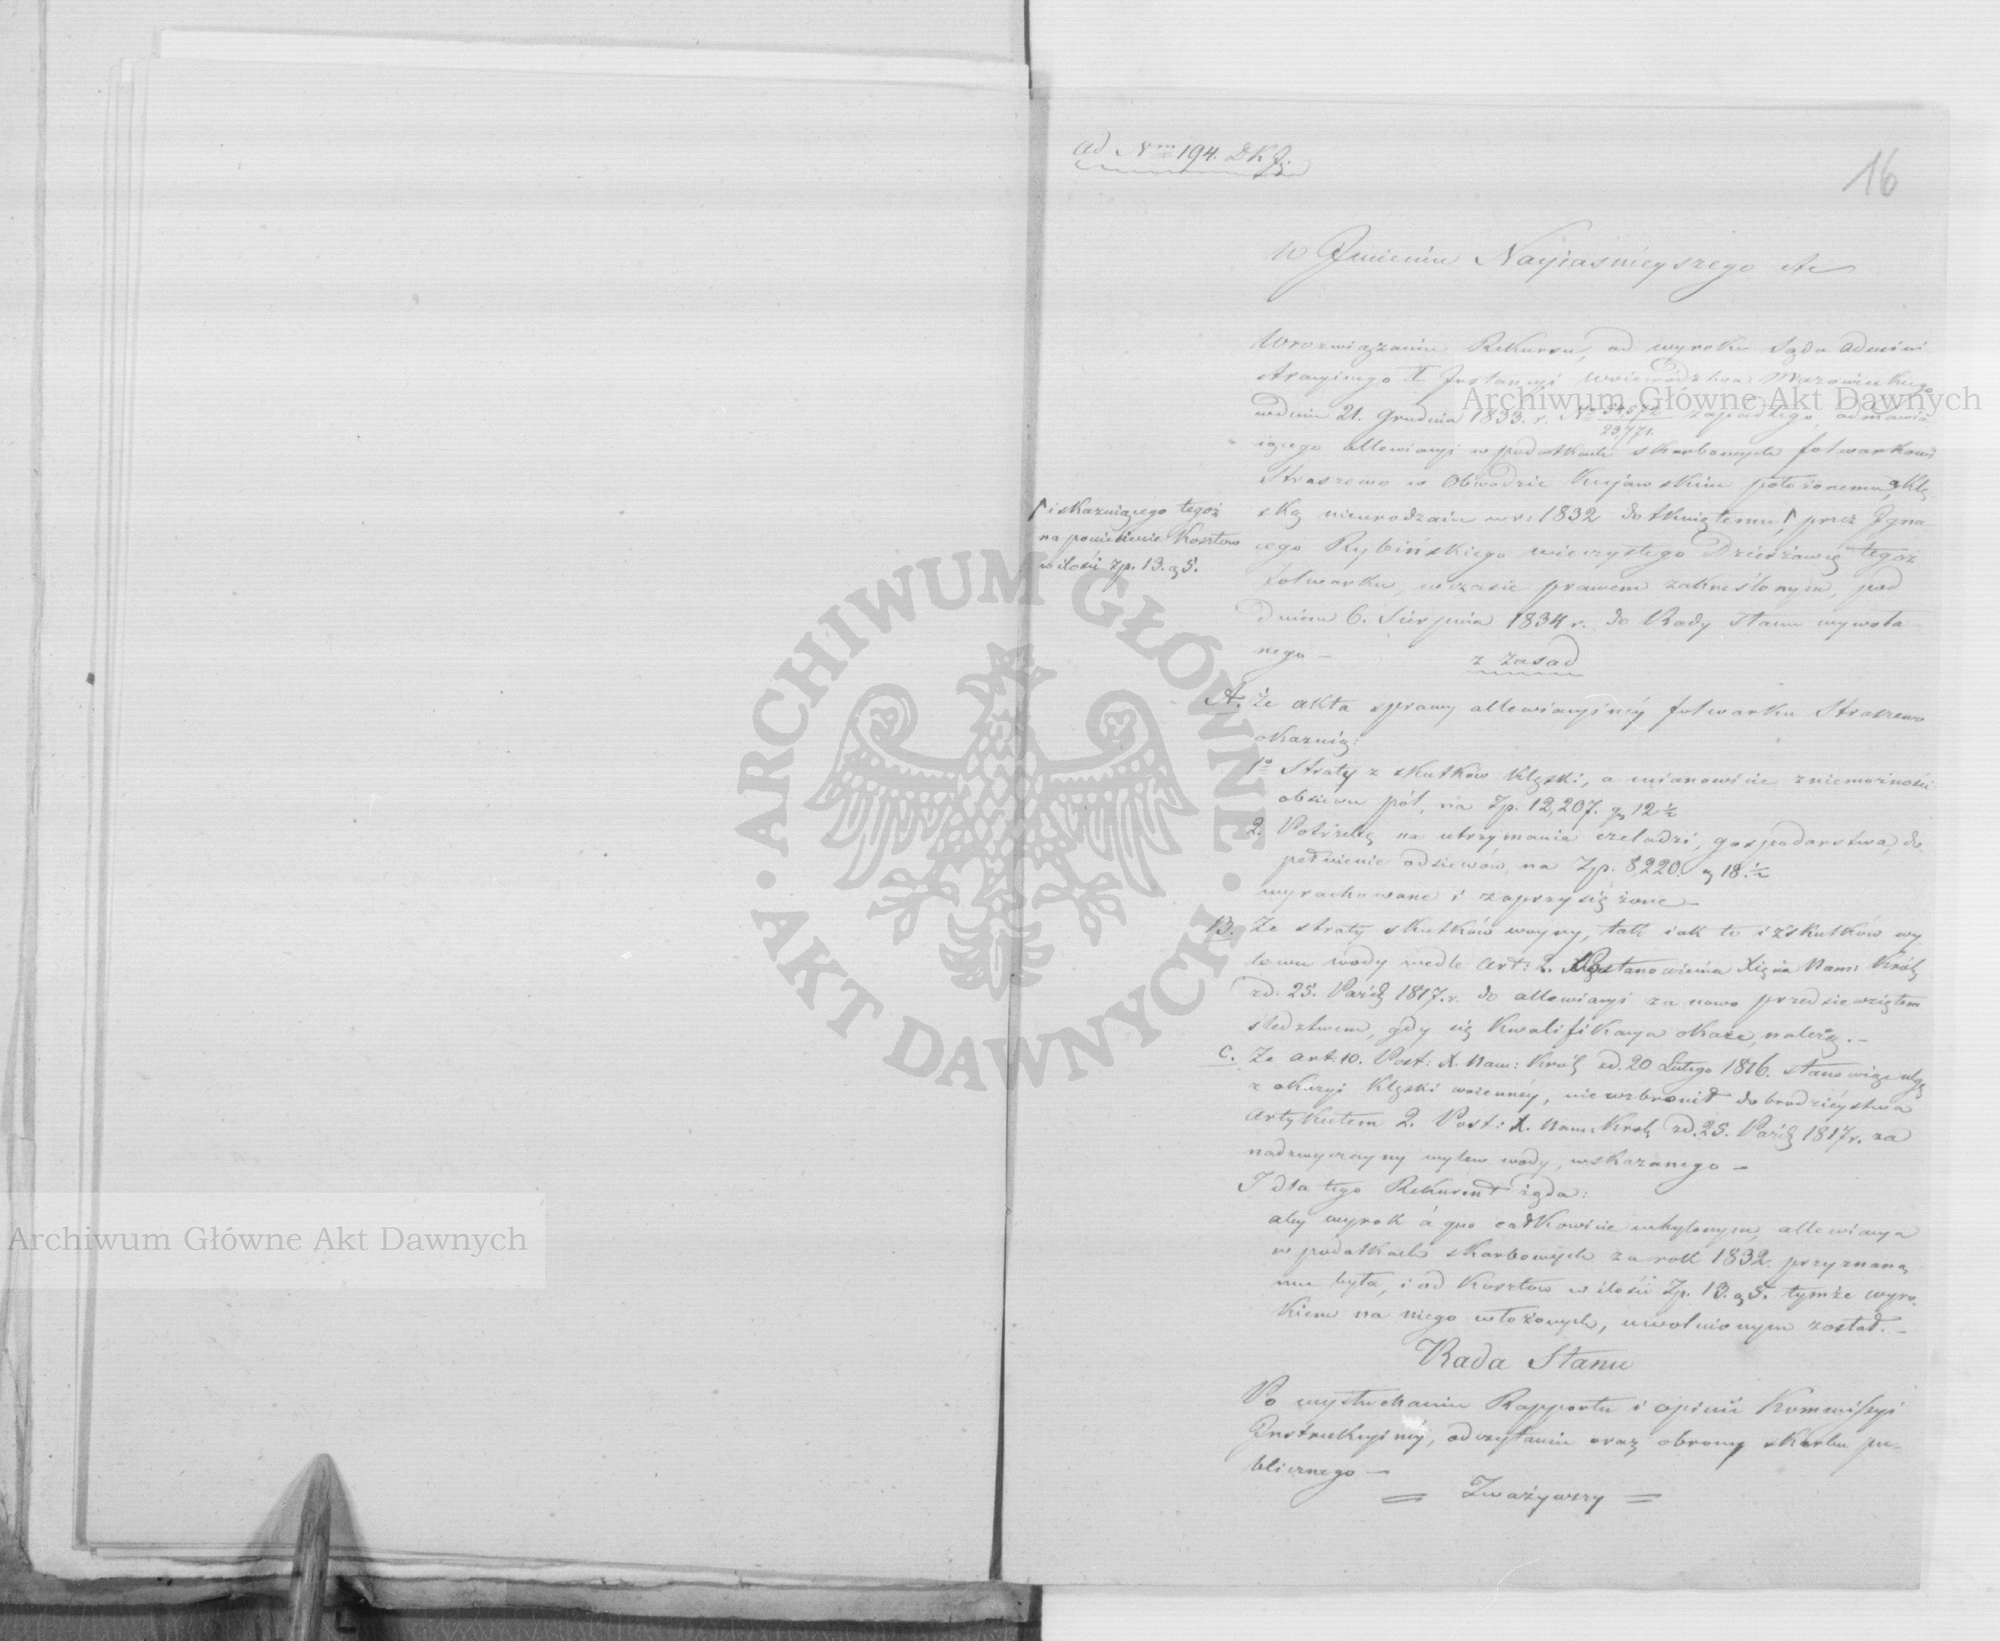 ad Nrm 194. DKJ.
16
w Jmieniu Nayiaśnieyszego etc
W rozwiązaniu Rekursu, od wyroku Sądu admini
stracyinego I Jnstancyi Woiewództwa Mazowieckiego
w dniu 21. Grudnia 1833. r. No 54,572/23,771. zapadłego, odmawia
iącego allewiacyi w podatkach skarbowych folwarkowi
Straszewo w Obwodzie Kujawskim położonemu, Klę
ską nieurodzaiu w r: 1832 dotkniętemu, przez Jgna
cego Rybińskiego wieczystego Dzierżawcę tegoż
folwarku, w czasie prawem zakreślonym, pod
dniem 6. Sierpnia 1834 r. do Rady Stanu wywoła
nego —
i skazuiącego tegoż
na poniesienie Kosztów
w ilości zp. 13. g 5.
z zasad
A. Że akta sprawy allewiacyiney folwarku Straszewo
okazuią:
1o Straty z skutków Klęski, a mianowicie z niemożności
obsiewu pól, na Zp. 12,207. g 12 ½
2. Potrzebę na utrzymania czeladzi, gospodarstwa, do
pełnienie odsiewów, na Zp. 8,220. g 18. ½
wyrachowane i zaprzysiężone —
B. Że straty skutków woyny, tak iak te i z skutków wy
lewu wody wedle art: 2. Postanowienia Xięcia Nam: Król
z d. 25. Paźdz 1817. r. do allewiacyi za nowo przedsiewziętem
śledztwem, gdy się kwalifikacya okaże, należą. —
C. Że art: 10. Post: X. Nam: Król z d. 20 Lutego 1816. stanowiąc ulgę
z okazyi Klęski woienney, nie wzbronił dobrodzieystwa
artykułem 2. Post: X. Nam: Król z d. 25. Paźdz 1817 r. za
nadzwyczayny wylew wody, wskazanego —
J dla tego Rekurent żąda:
aby wyrok á quo całkowicie uchylonym, allewiacya
w podatkach skarbowych za rok 1832. przyznaną
mu była, i od Kosztów w ilości Zp. 13. g 5. tymże wyro
kiem na niego włożonych, uwolnionym został. —
Rada Stanu
Po wysłuchaniu Rapportu i opinii Kommissyi
Jnstrukcyiney, odczytaniu oraz obrony skarbu pu-
blicznego —
= Zważywszy =
Archiwum Główne Akt Dawnych
Archiwum Główne Akt Dawnych
ARCHIWUM GŁÓWNE · AKT DAWNYCH ·